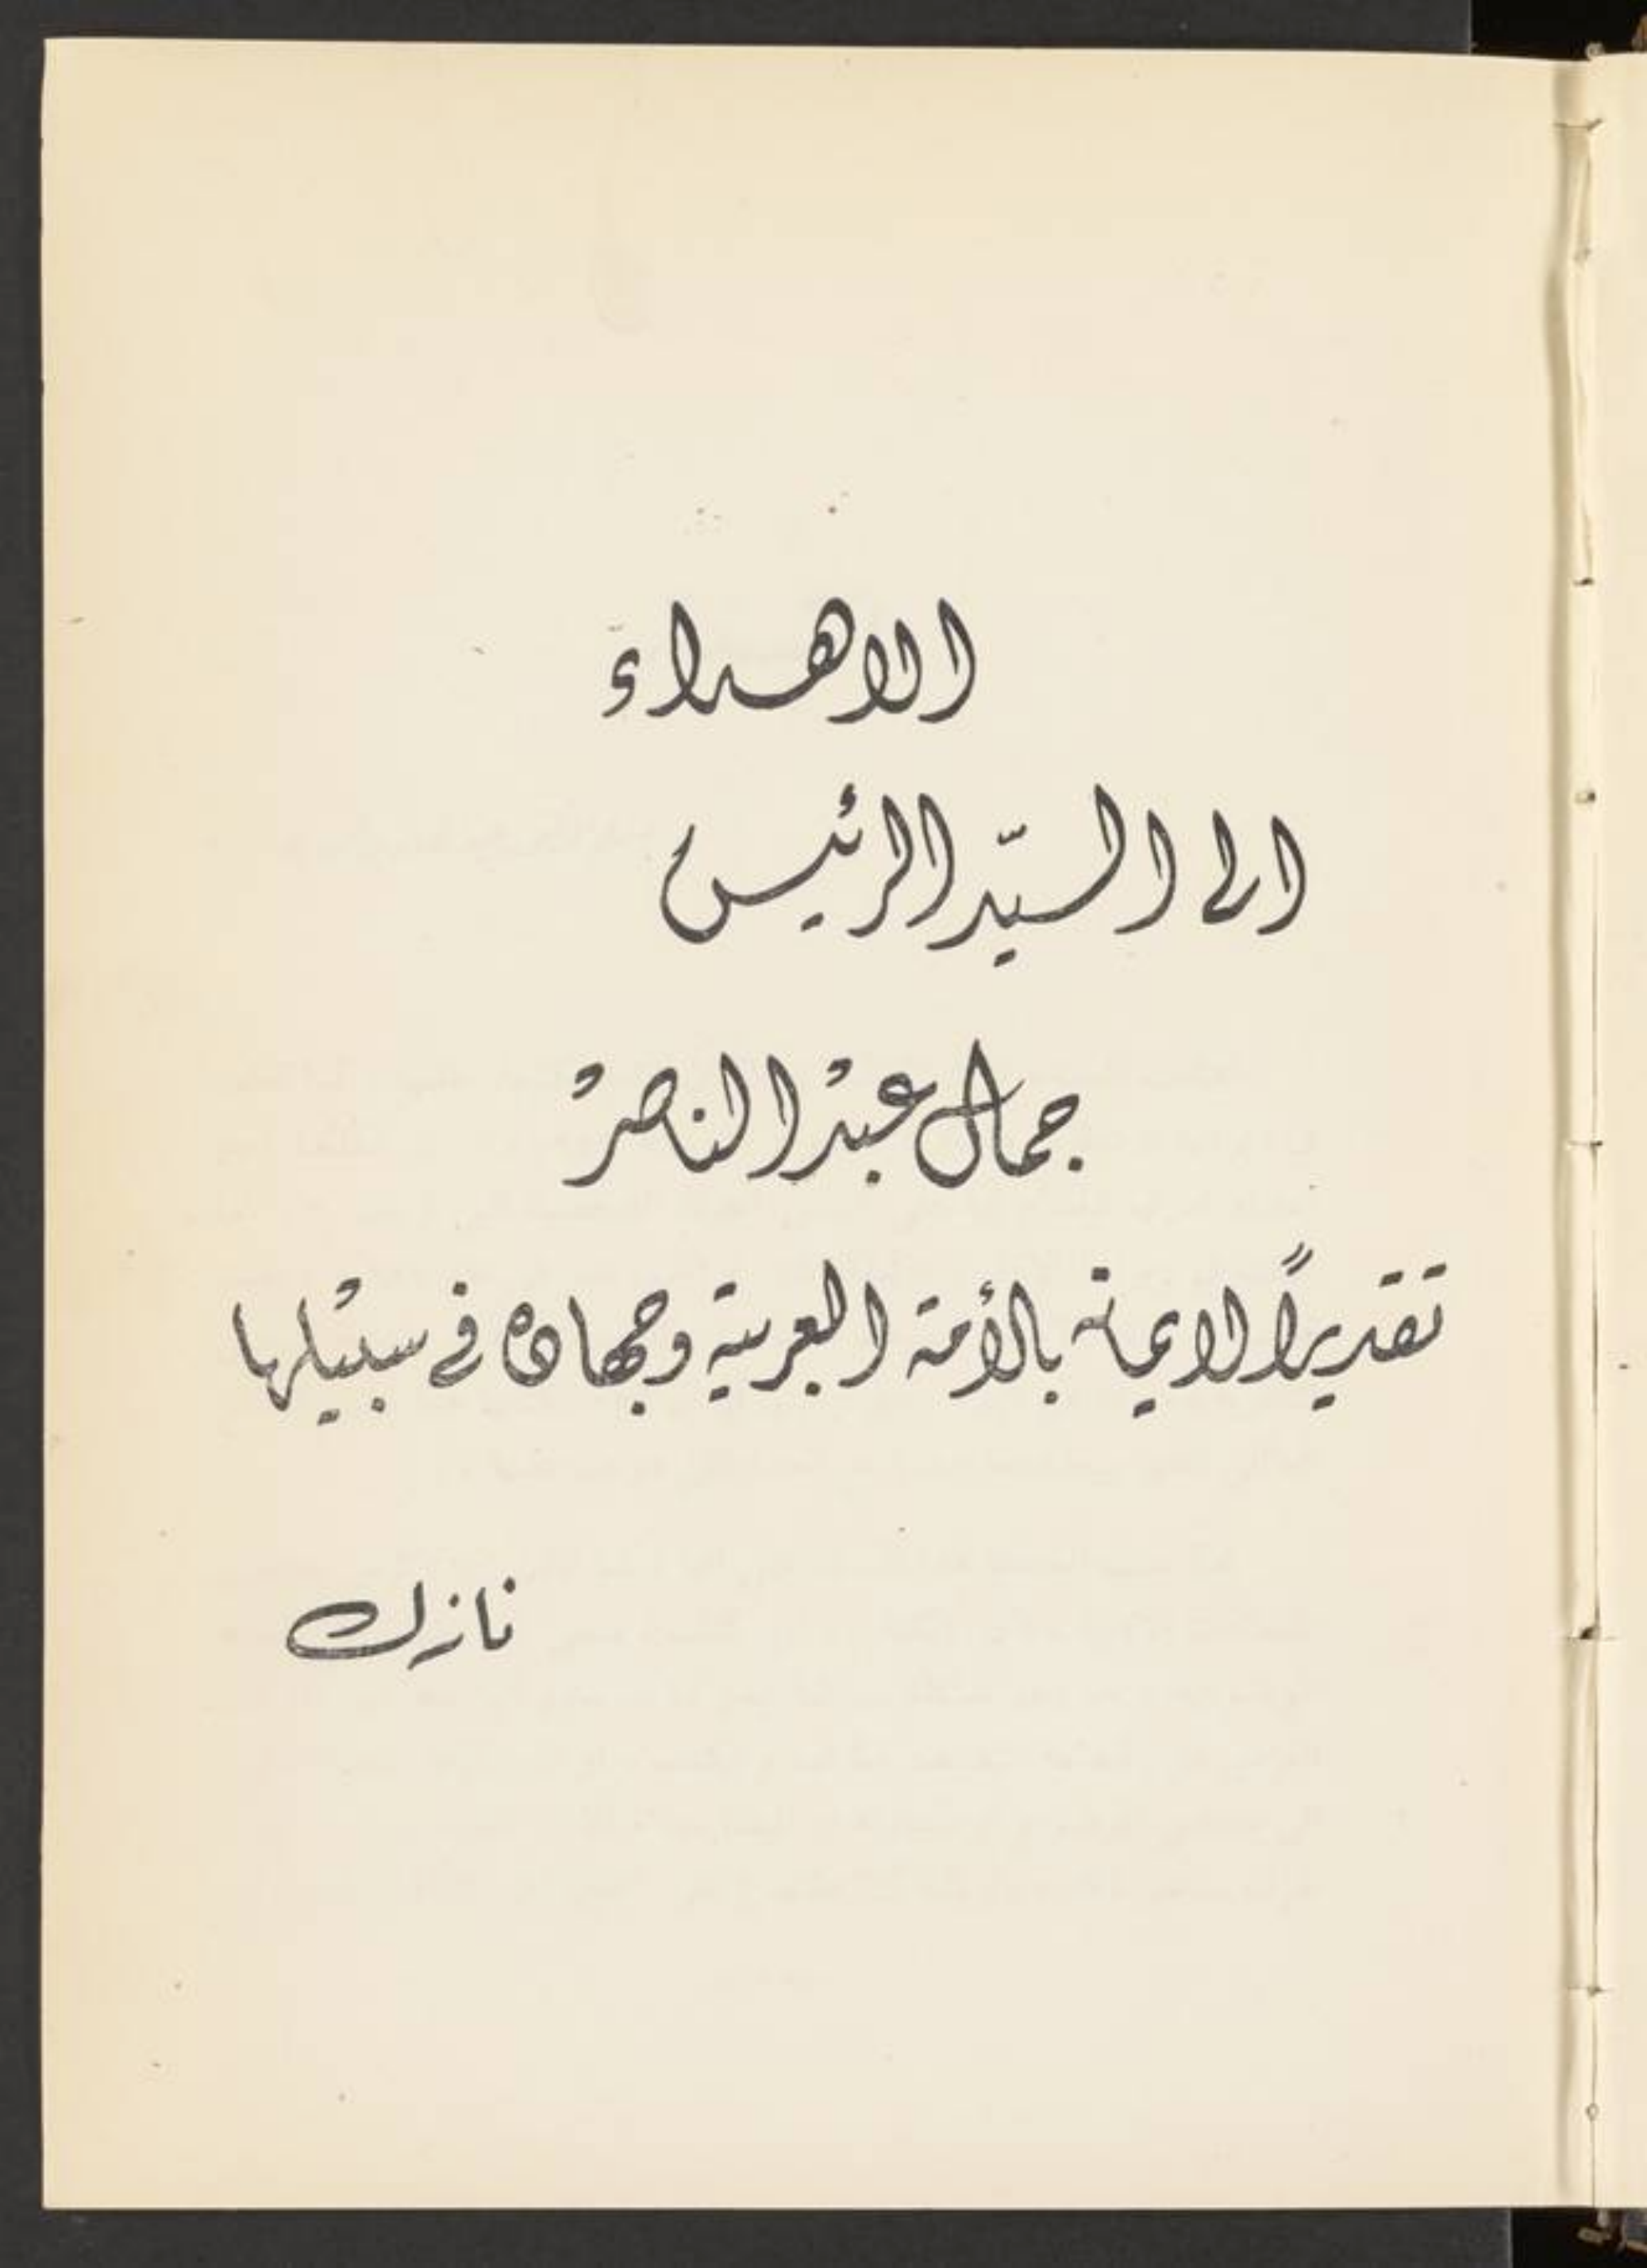 الاهداء
الى السيّد الرئيس
جمال عبد الناصر
تقديرًا لايمانه بالأمة العربية وجهاده في سبيلها
نازك